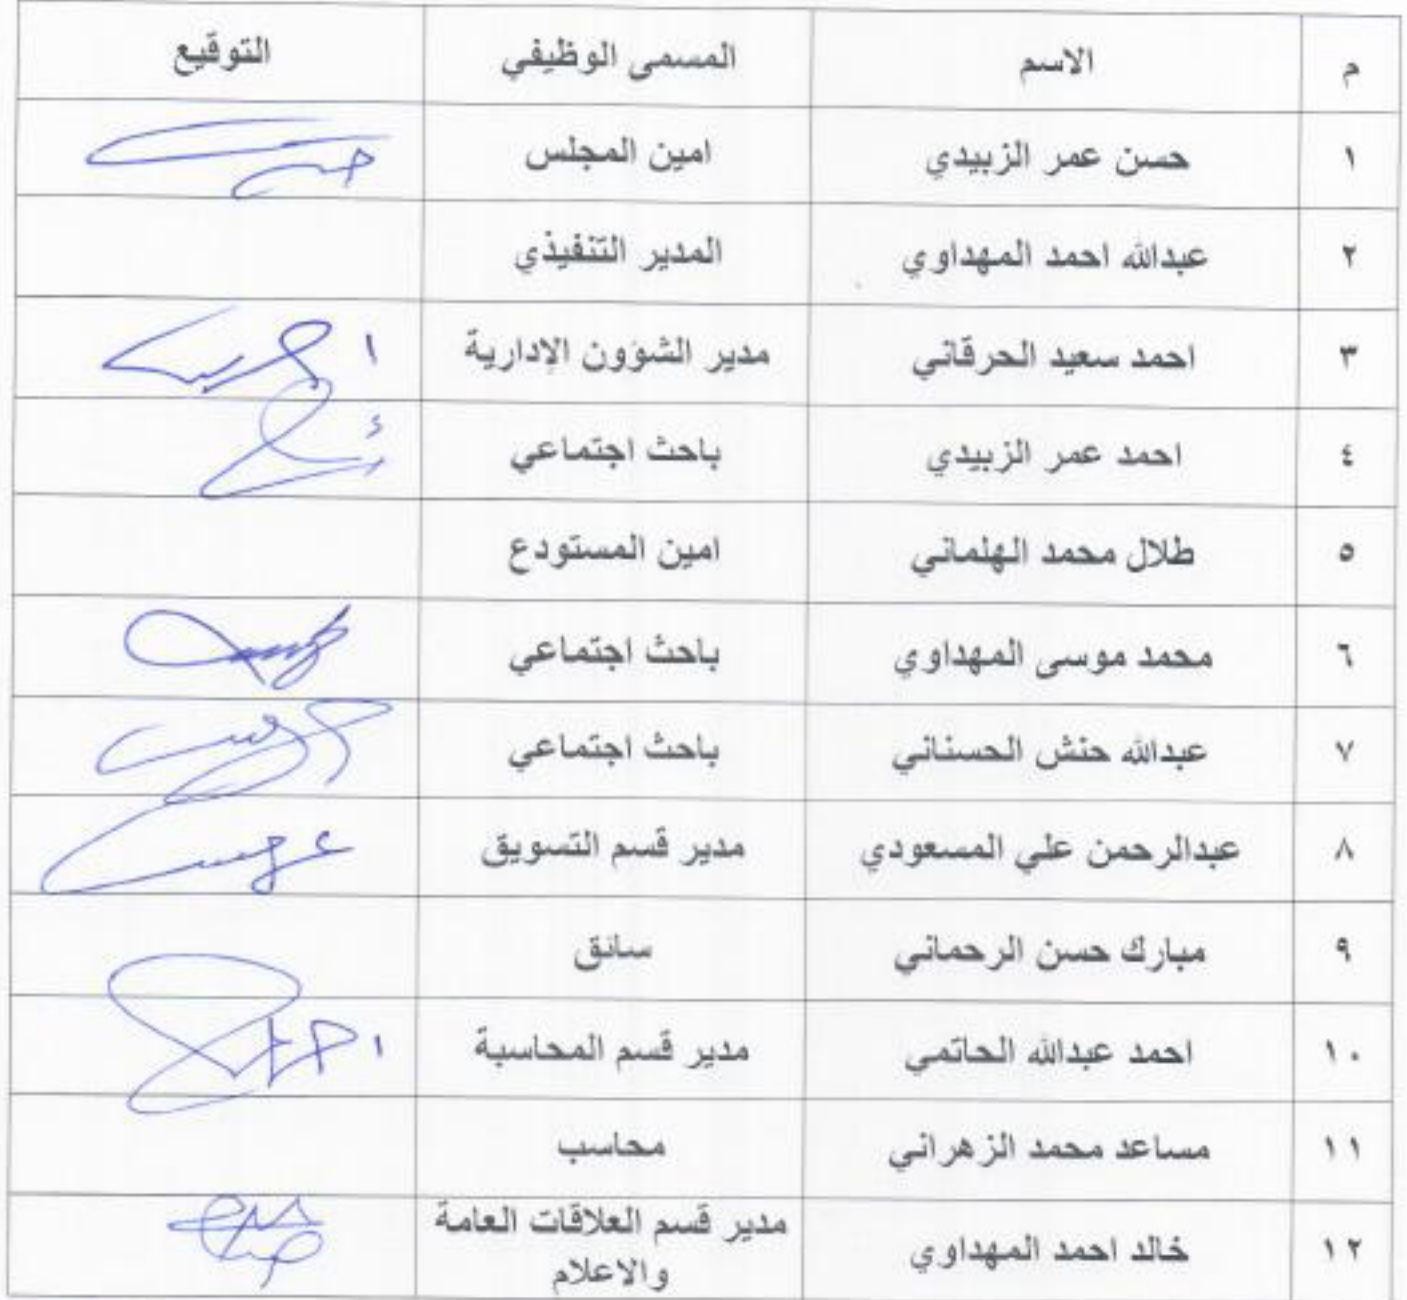 م الاسم المسمى الوظيفي التوقيع
١ حسن عمر الزبيدي امين المجلس
٢ عبدالله احمد المهداوي المدير التنفيذي
٣ احمد سعيد الحرقاني مدير الشؤون الإدارية
٤ احمد عمر الزبيدي باحث اجتماعي
٥ طلال محمد الهلماني امين المستودع
٦ محمد موسى المهداوي باحث اجتماعي
٧ عبدالله حنش الحسناني باحث اجتماعي
٨ عبدالرحمن علي المسعودي مدير قسم التسويق
٩ مبارك حسن الرحماني سائق
١٠ احمد عبدالله الحاتمي مدير قسم المحاسبة
١١ مساعد محمد الزهراني محاسب
١٢ خالد احمد المهداوي مدير قسم العلاقات العامة
والاعلام